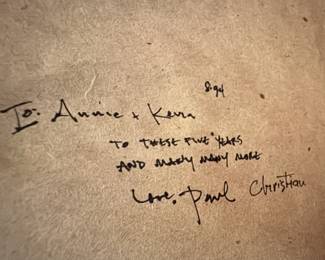 8.94
To: Annie + Kevin
TO THESE FIVE YEARS
AND MANY MANY MORE
Love, Paul Christian